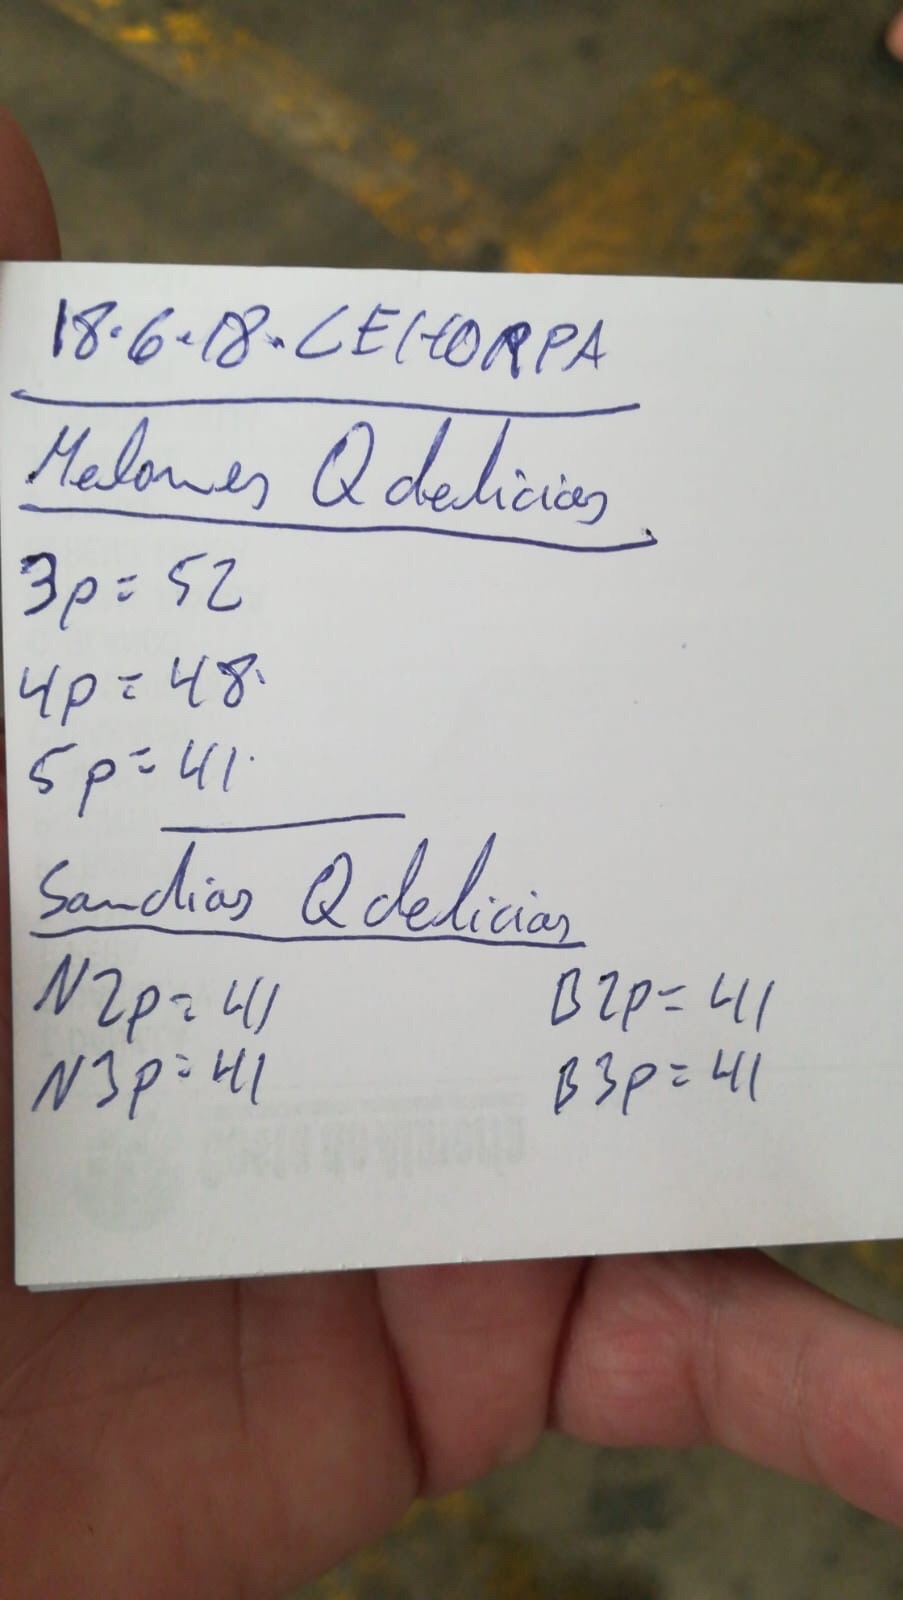 18.6.18. CEHORPA
Melones Qdelicias
3p = 52
4p = 48.
5p = 41.
Sandias Qdelicias
N2p = 41 B2p = 41
N3p = 41 B3p = 41